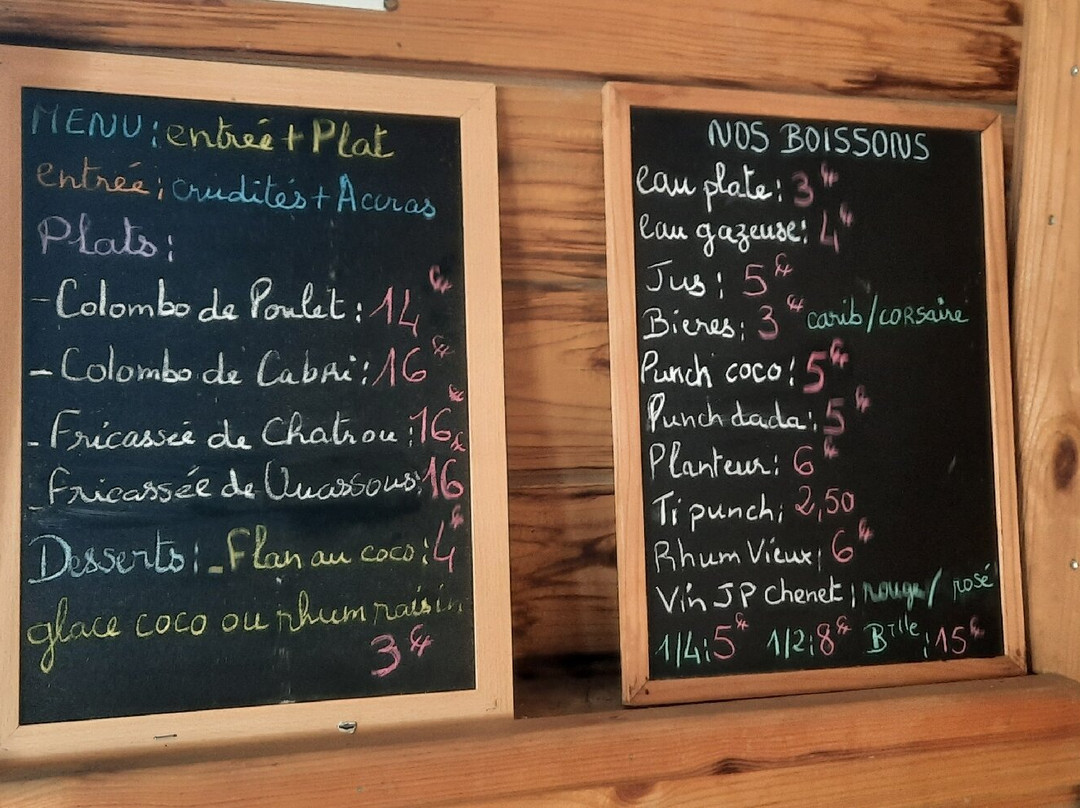 MENU: entrée + Plat
entrée: crudités + Accras
Plats:
- Colombo de Poulet: 14€
- Colombo de Cabri: 16€
- Fricassée de Chatrou: 16€
- Fricassée de Ouassous: 16€
Desserts: - Flan au coco: 4€
glace coco ou rhum raisin
3€
NOS BOISSONS
eau plate: 3€
eau gazeuse: 4€
Jus: 5€
Bieres: 3€ carib/CORSaire
Punch coco: 5€
Punch dada: 5€
Planteur: 6€
Ti punch: 2,50
Rhum Vieux: 6€
Vin JP chenet: rouge/ rosé
1/4: 5€ 1/2: 8€ Btlle: 15€